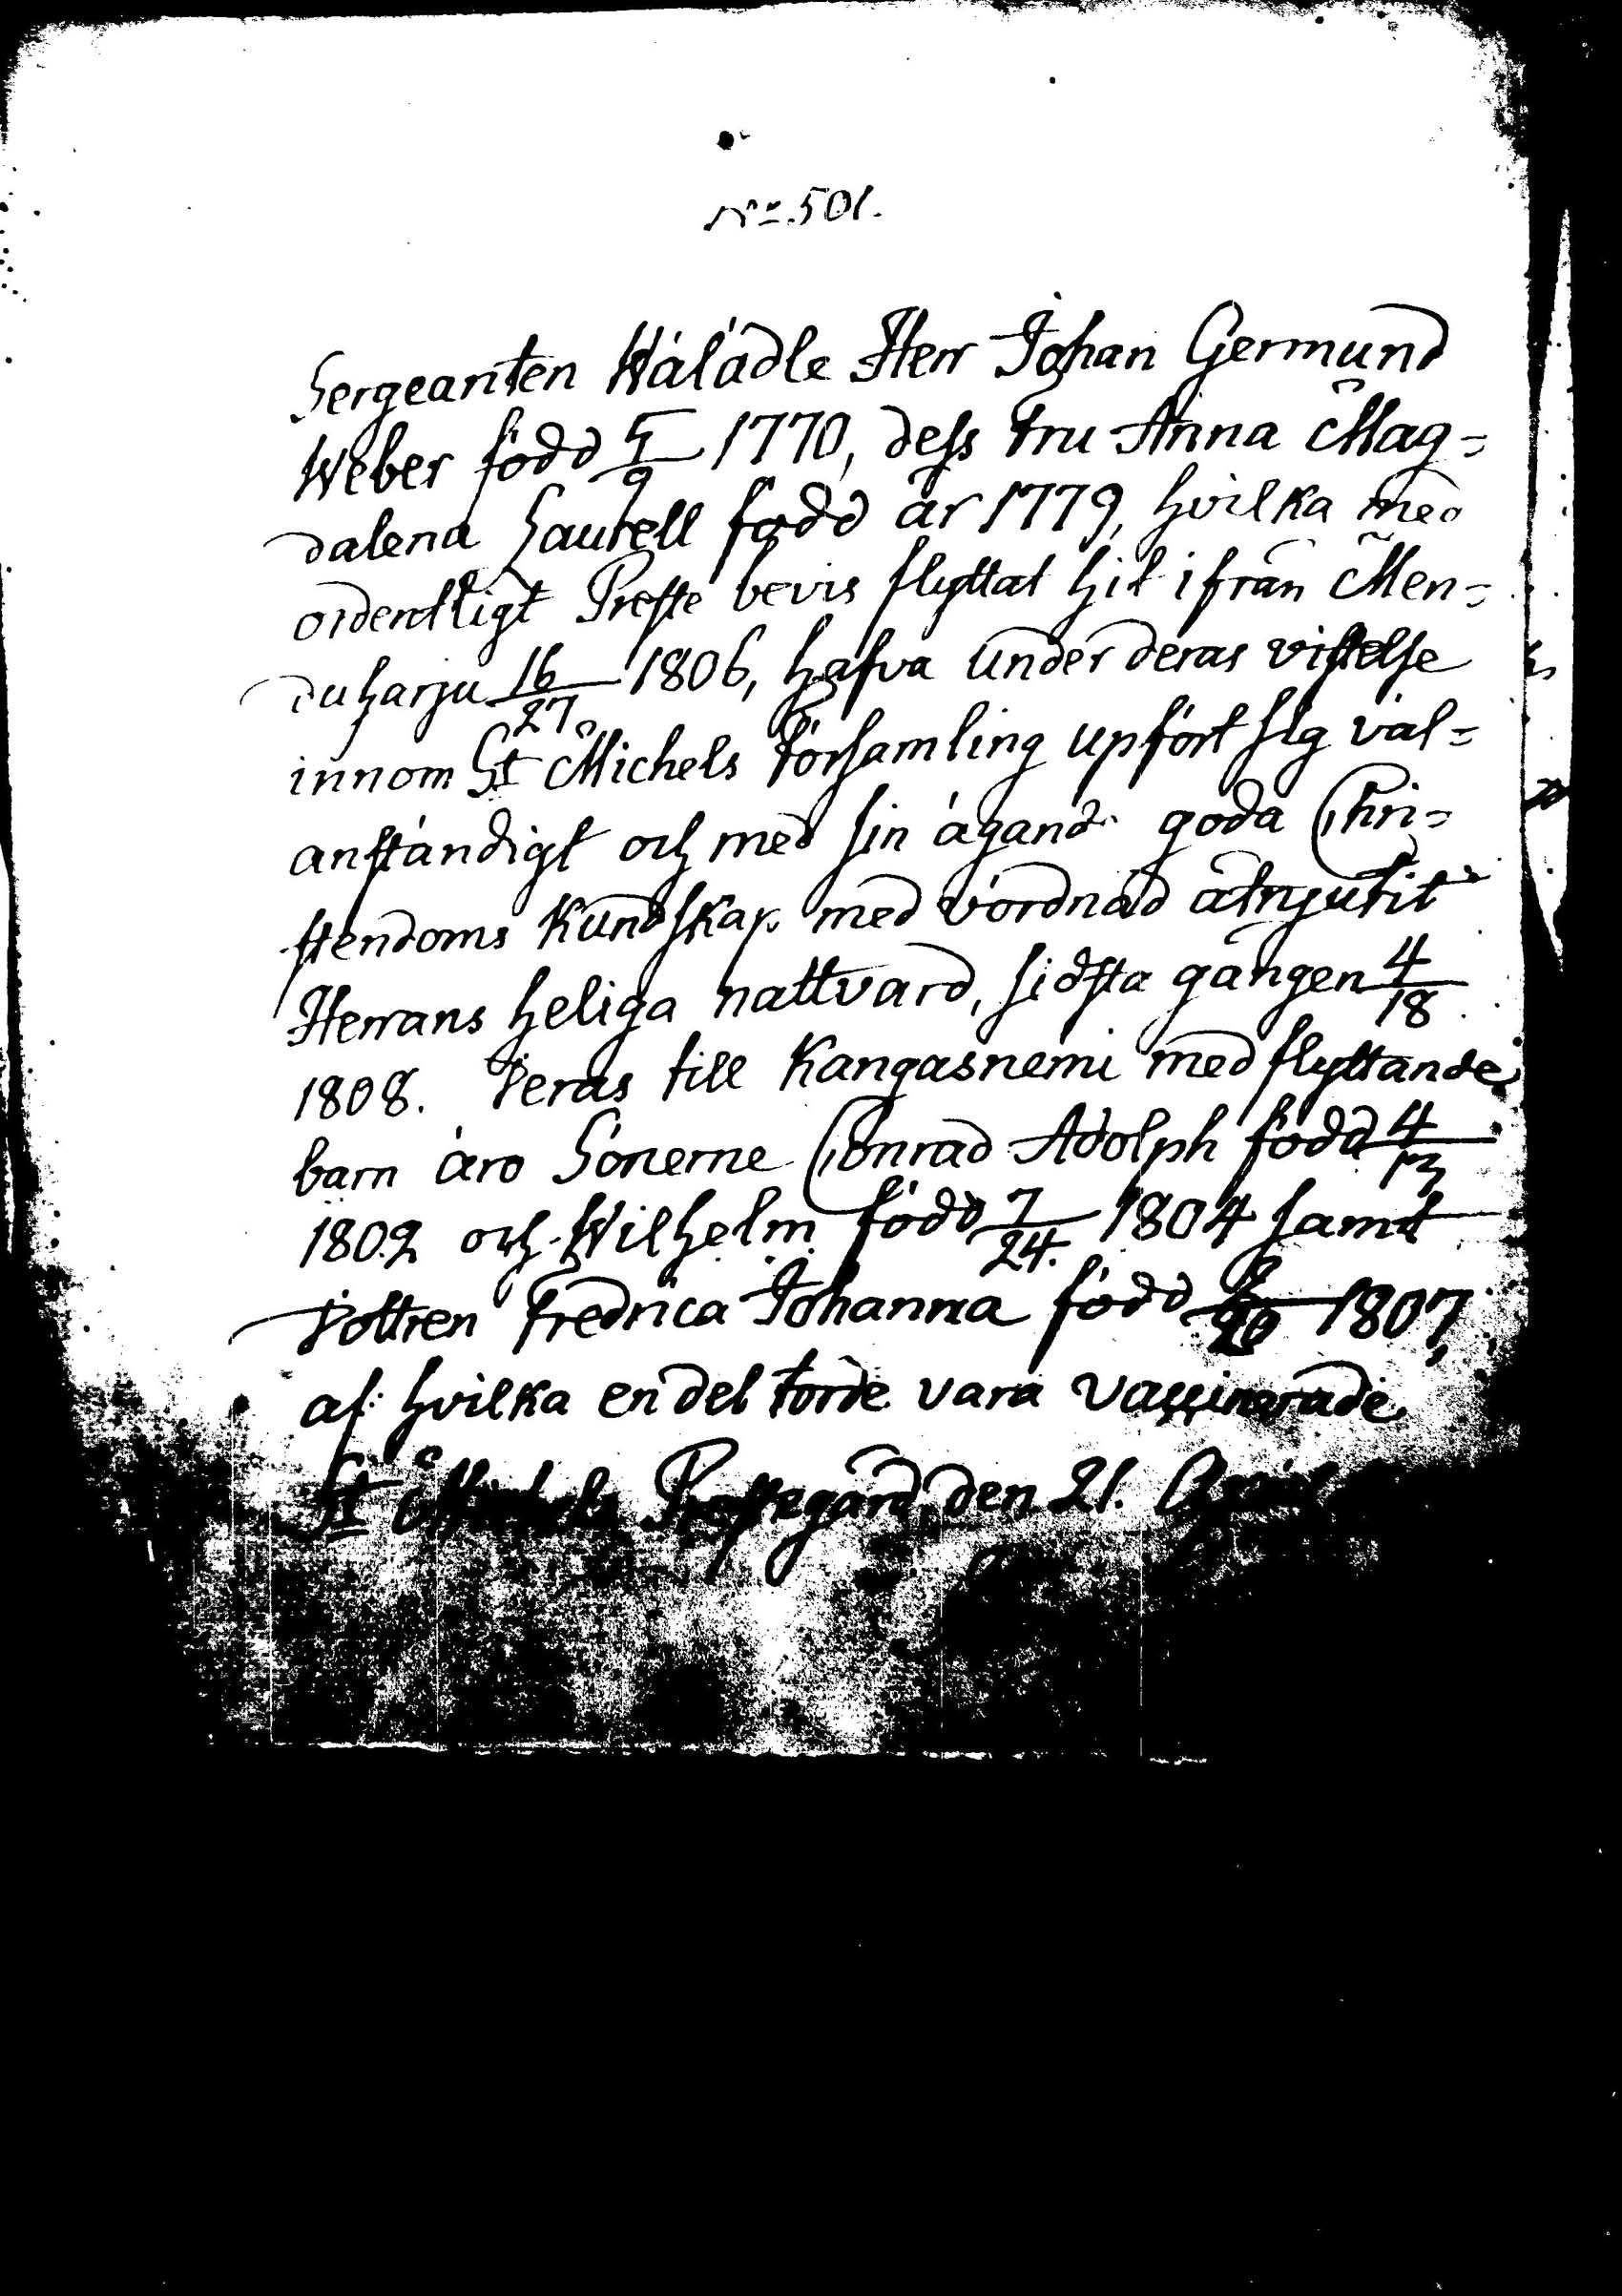 No. 501.
Sergeanten Wälädle Herr Johan Germund
Weber född 5/9 1770, dess Fru Anna Mag=
dalena Saurell född år 1779, hvilka med
ordentligt Preste bevis flyttat hit ifrån Men=
duharju 16/27 1806, hafva under deras vistelse
innom St Michels Församling upfört sig väl=
anständigt och med sin ägande goda Chri=
stendoms kundskap med vördnad åtnjutit
Herrans heliga nattvard, sidsta gången 4/18
1808. Deras till Kangasnemi med flyttande
barn äro Sönerne Conrad Adolph född 4/13
1802 och Wilhelm född 7/24. 1804 samt
Dottren Fredrica Johanna född 1807,
af hvilka en del torde vara vaccinerade.
St Michels Prestegård, den 21. April